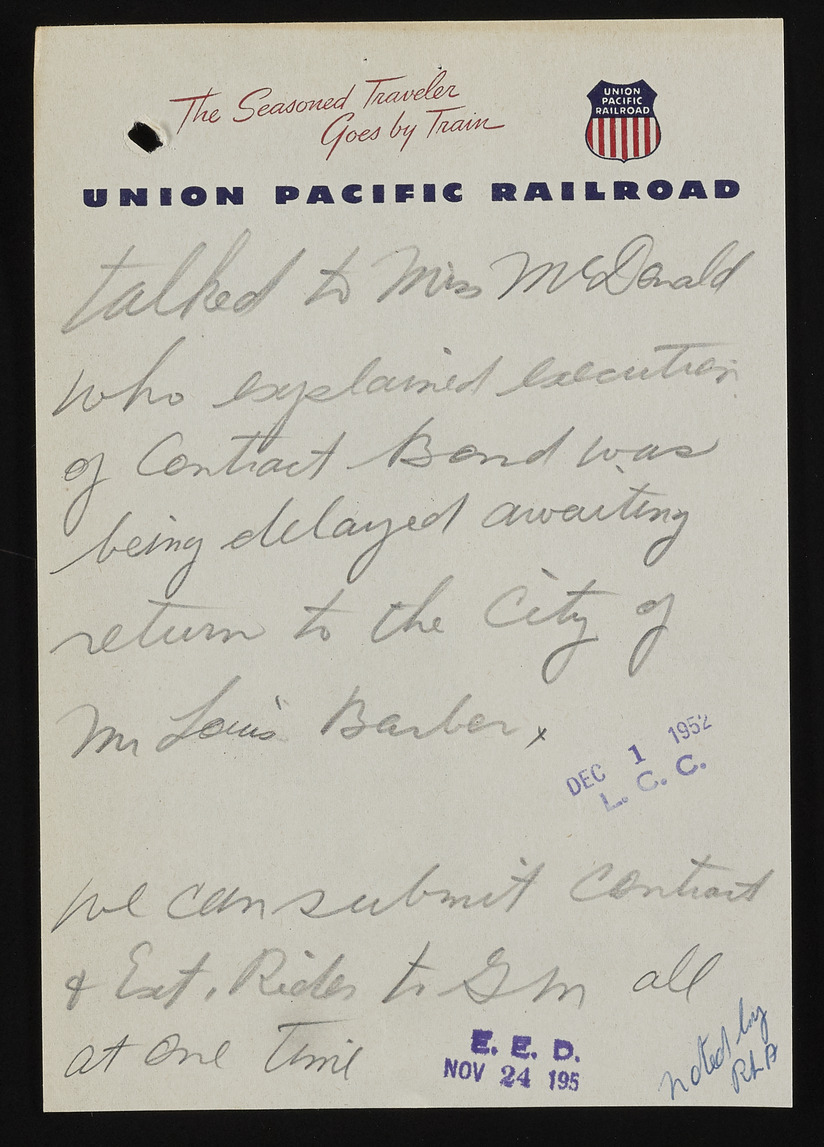 The Seasoned Traveler
Goes by Train
UNION
PACIFIC
RAILROAD
UNION PACIFIC RAILROAD
talked to Miss McDonald
who explained execution
of Contract Bond was
being delayed awaiting
return to the City of
Mr Louis Barber
DEC 1 1952
L. C. C.
we can submit contract
& Ext. Rider to GM all
at one time
E. E. D.
NOV 24 195
noted by
RLA